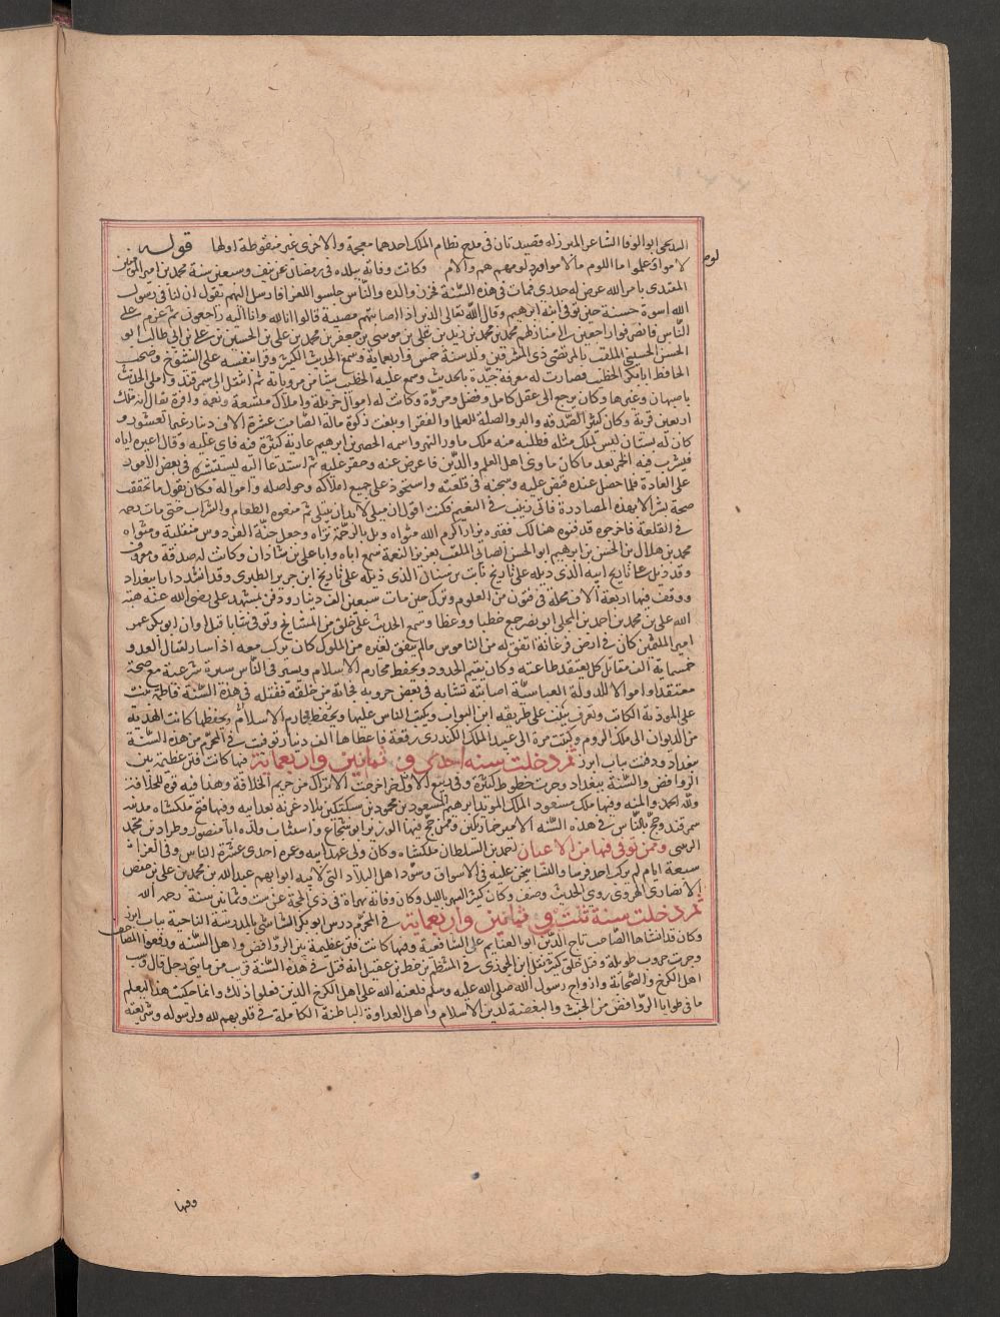 ابو الوفا الشاعر المبرز له قصيدتان في مدح نظام الملك احدهما معجمة والاخرى غير منقوطة اولها قوله
لاموا ولو علموا ما اللوم ما لاموا ورد لومهم هم والام وكانت وفاته ببلده في رمضان عن نيف وسبعين سنة محمد بن امير المومنين
المقتدي بامر الله عرض له جدري فمات في هذه السنة فحزن والده والناس جلسوا للعزا فارسل اليهم تقول ان لنا في رسول
الله اسوة حسنة حين توفي ابنه ابرهيم وقال الله تعالى الذين اذا اصابتهم مصيبة قالوا انا لله وانا اليه راجعون ثم عزم على
الناس فانصرفوا راجعين الى منازلهم محمد بن محمد بن زيد بن علي بن موسى بن جعفر بن محمد بن علي بن الحسين بن علي بن ابي طالب ابو
الحسن الحسيني الملقب بالمرتضى ذي الشرفين ولد سنة خمس واربعماية وسمع الحديث الكثير وقرا بنفسه على الشيوخ وصحب
الحافظ ابا بكر الخطيب فصارت له معرفة جيدة بالحديث وسمع عليه الخطيب شيا من مروياته ثم انتقل الى سمرقند واملى الحديث
باصبهان وغيرها وكان يرجع الى عقل كامل وفضل ومروة وكانت له اموال جزيلة واملاك متسعة ونعمة وافرة يقال انه ملك
اربعين قرية وكان كثير الصدقه والبر والصلة للعلما والفقرا وبلغت زكوة ماله الصامت عشرة الاف دينار غير العشور و
كان له بستان ليس لملك مثله فطلبه منه ملك ماورا النهر واسمه الخضر بن ابرهيم عارية ليتنزه فيه فابى عليه وقال اعيره اياه
فيشرب فيه الخمر بعد ما كان ماوى اهل العلم والدين فاعرض عنه وحقد عليه ثم استدعا اليه ليستشيره في بعض الامور
على العادة فلما حصل عنده قبض عليه وسجنه في قلعته واستحوذ على جميع املاكه وحواصله وامواله وكان يقول ما تحققت
صحة نسبي الا بهذه المصادرة فاني ربيت في النعيم فكنت اقول ان مثلي لا بد ان يبتلى ثم منعوه الطعام والشراب حتى مات رحمه
في القلعة فاخرجوه فدفنوه هنالك فقبره يزار اكرم الله مثواه وبل بالرحمة ثراه وجعل جنة الفردوس منقلبه ومثواه
محمد بن هلال بن المحسن بن ابرهيم ابو الحسن الصابي الملقب بغرس النعمة سمع اباه وابا علي بن شاذان وكانت له صدقة ومعروف
وقد ذيل على تاريخ ابيه الذي ذيله على تاريخ ثابت بن سنان الذي ذيله على تاريخ ابن جرير الطبري وقد انشا دارا ببغداد
ووقف فيها اربعة الاف مجلد في فنون من العلوم وترك حين مات سبعين الف دينار ودفن بمشهد علي رضي الله عنه هبة
الله علي بن محمد بن احمد بن المجلي ابو نصر جمع خطبا ووعظا وسمع الحديث على خلق من المشايخ وتوفي شابا قبل اوان ابو بكر عمر
امير الملثمين كان في ارض فرغانة اتفق له من الناموس مالم يتفق لغيره من الملوك كان يركب معه اذا سار لقتال العدو
خمسماية الف مقاتل كل يعتقد طاعته وكان يقيم الحدود ويحفظ محارم الاسلام ويسير في الناس سيرة شرعية مع صحة
معتقده وموالاة الدولة العباسية اصابته نشابه في بعض حروبه فجاته في حلقه فقتله في هذه السنة فاطمة بنت
علي المودبة الكاتبة وتعرف ببنت على طريقة ابن البواب ويكتب الناس عليها ويحفظ محارم الاسلام ويحفظها كانت الهدية
من الديوان الى ملك الروم وكتبت مرة الى عميد الملك الكندري رقعة فاعطاها الف دينار توفت في المحرم من هذه السنة
ببغداد ودفنت بباب ابرز ثم دخلت سنه احدى وثمانين واربعماية فيها كانت فتن عظيمة بين
الروافض والسنة ببغداد وجرت خطوط كثيرة وفي ربيع الاول اخرجت الاتراك من حريم الخلافة وهذا فيه قوة للخلافة
ولله الحمد والمنه وفيها ملك مسعود الملك المويد ابرهيم بن مسعود بن محمود بن سبكتكين بلاد غزنه بعد ابيه وفيها فتح ملكشاه مدينة
سمرقند وحج بالناس في هذه السنه الامير خمارتكين وممن حج فيها الوزير ابو شجاع واستناب ولده ابا منصور وطراد بن محمد
الزينبي وممن توفى فيها من الاعيان احمد بن السلطان ملكشاه وكان ولي عهد ابيه وعمره احدى عشرة الناس وفي العزا
سبعة ايام لم يركب احد فرسا والنسا ينحن عليه في الاسواق وسود اهل البلاد التي لابيه ابوابهم عبد الله بن محمد بن علي بن
الانصاري الهروي روى الحديث وصنف وكان كثير السهر بالليل وكان وفاته بهراة في ذي الحجة عن ست وثمانين سنة رحمه الله
ثم دخلت سنة ثلث وثمانين واربعماية في المحرم درس ابو بكر الشاشي بالمدرسة التاجية بباب ابرز
وكان قد انشاها الصاحب تاج الدين ابو الغنايم على الشافعية وفيها كانت فتن عظيمة بين الروافض واهل السنه ورفعوا المصاحف
وجرت حروب طويلة وقتل خلق كثير نقل ابن الجوزي في المنتظم من خط بن عقيل انه قتل في هذه السنة قريب من مايتي رجل قال وسب
اهل الكرخ والصحابة وازواج رسول الله صلى الله عليه وسلم فلعنة الله على اهل الكرخ الذين فعلوا ذلك وانما حكيت هذا ليعلم
ما في طوايا الروافض من الخبث والبغضة لدين الاسلام واهله والعداوة الباطنة الكاملة في قلوبهم لله ولرسوله وشريعته
وفيها